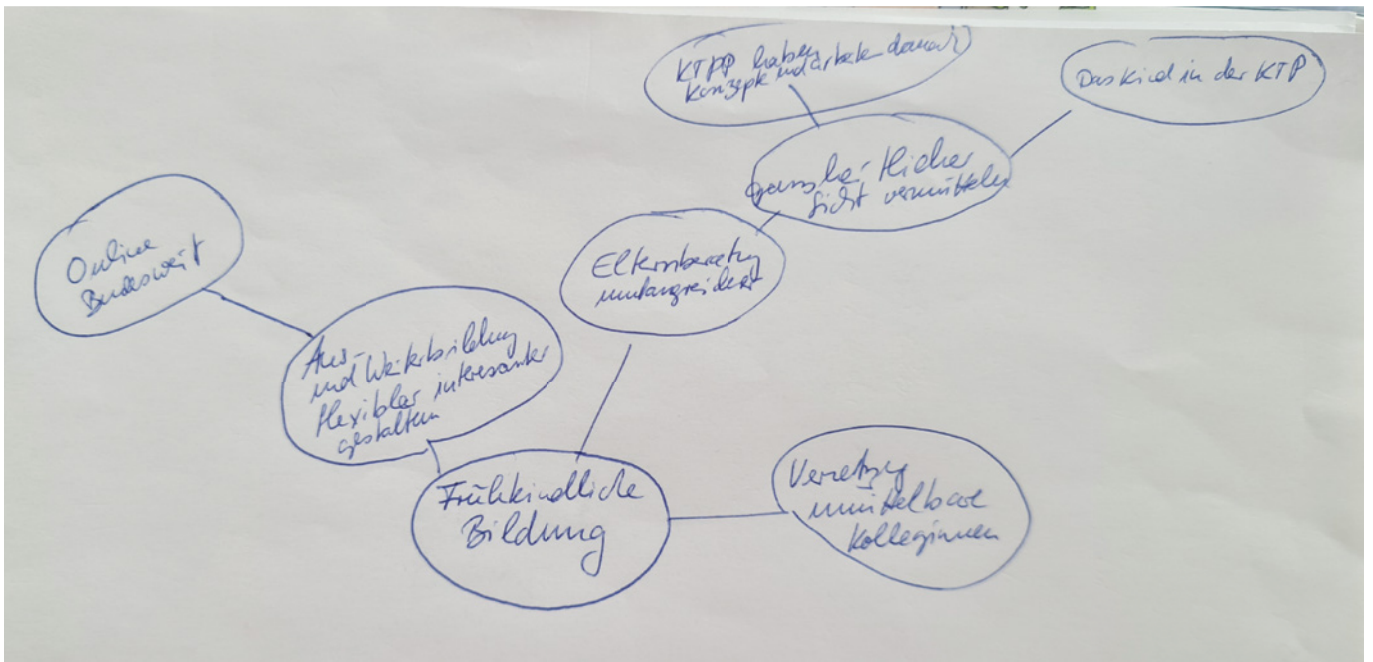 KTPP haben
Konzepte und arbeiten danach
Das Kind in der KTP
ganzheitlicher
Sicht vermitteln
Elternberatung
umfangreicher
Online
Bundesweit
Aus-
und Weiterbildung
flexibler interessanter
gestalten
Frühkindliche
Bildung
Vernetzung
unmittelbare
Kolleginnen